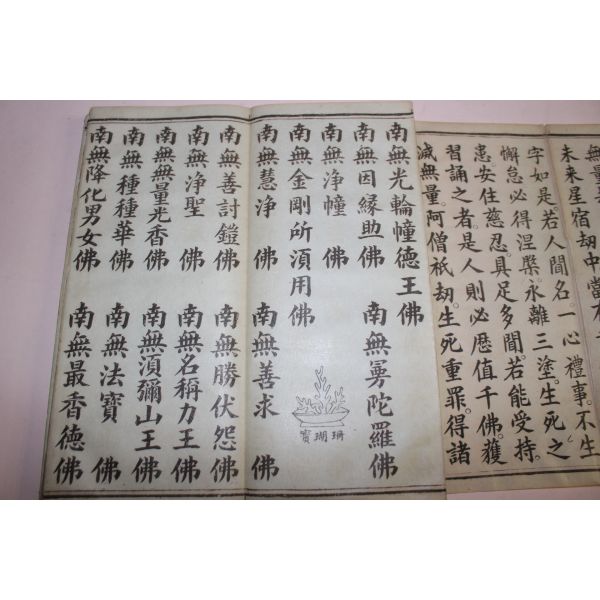 無量
未来星宿劫中當
字如是若人聞名一心禮事。不生
懈怠必得涅槃。永離三塗。生死之
患安住慈忍。具足多聞。若能受持。
習誦之者是人則必歷值千佛。獲
滅無量。阿僧祇劫。生死重罪。得諸
南無光輪幢德王佛
南無因緣助佛
南無陀羅佛
南無淨幢佛
珊瑚寶
南無金剛所須用佛
南無慧淨佛
南無善求佛
南無善討鎧佛
南無勝伏怨佛
南無淨聖佛
南無名稱力王佛
南無無量光香佛
南無須彌山王佛
南無種種華佛
南無法寶佛
南無降化男女佛
南無最香德佛